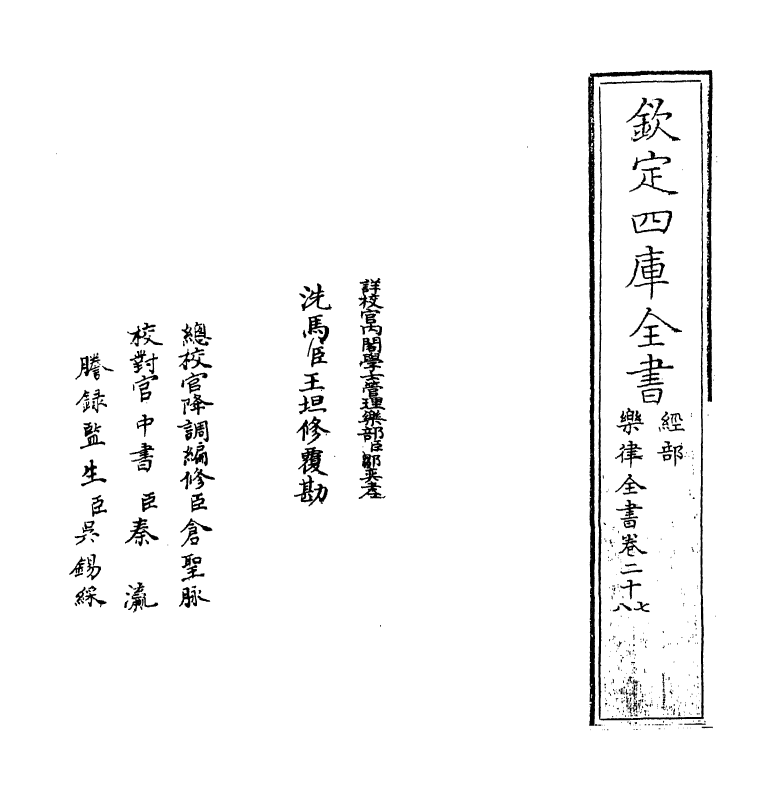 欽定四庫全書
經部
樂律全書卷二十七八
詳校官內閣學士管理樂部臣鄒奕孝
洗馬臣王坦修覆勘
總校官降調編修臣倉聖脈
校對官中書臣秦瀛
謄録監生臣吳錫綵